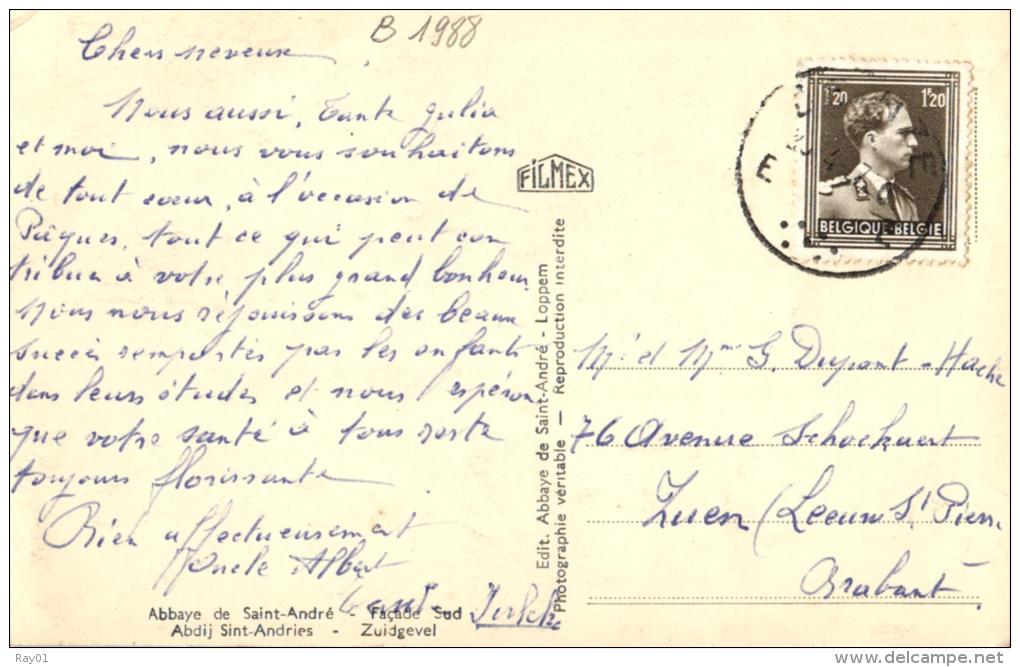 B 1988
Chers neveux
Nous aussi, tante Julia
et moi, nous vous souhaitons
de tout cœur, à l'occasion de
Pâques, tout ce qui peut con
tribuer à votre plus grand bonheur
Nous nous réjouissons des beaux
succès remportés par les enfants
dans leurs études et nous espérons
que votre santé à tous reste
toujours florissante
Bien affectueusement
Oncle Albert
Tante
Abbaye de Saint-André - Façade Sud
Abdij Sint-Andries - Zuidgevel
FILMEX
Edit. Abbaye de Saint-André - Loppem
Photographie véritable — Reproduction interdite
1F20 1F20
BELGIQUE-BELGIE
Mr et Mme G. Dupont-Hache
76 Avenue Schockaert
Zuen (Leeuw St Pierre
Brabant)
Ray01
http://www.delcampe.net